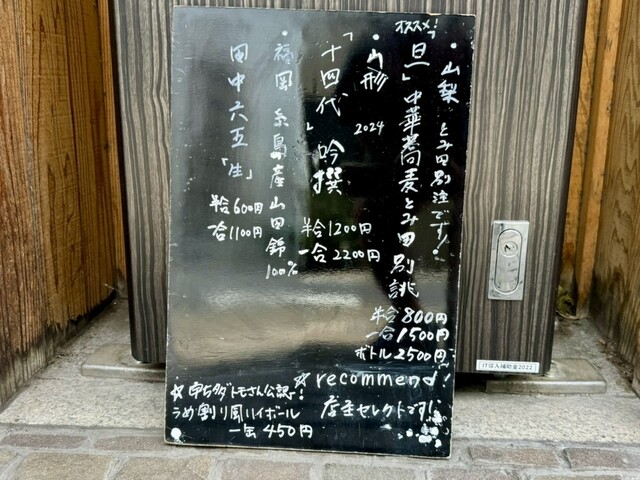 オススメ!
・山梨 とみ田別注です!
「旦」中華蕎麦とみ田別誂
半合800円
一合1500円
ボトル2500円
・山形 2024
「十四代」吟撰
半合1200円
一合2200円
・福岡 糸島産山田錦100%
田中六五「生」
半合600円
一合1100円
☆recommend!
店主セレクトです!
☆ トモさん公認!
うめ割り風ハイボール
一缶450円
行収入補助金2022